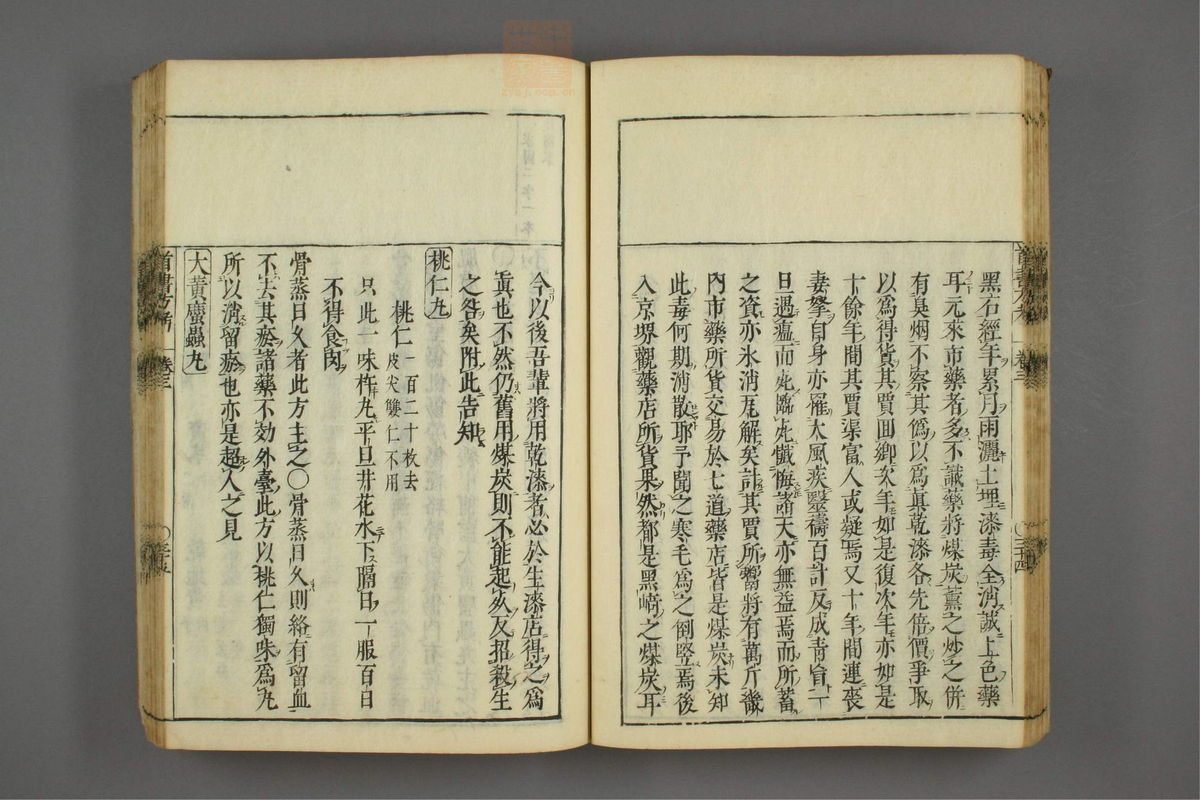 黑石經年累月雨灑土埋漆毒全消誠上色藥
耳元來市藥者多不識藥將煤炭薰之炒之併
有臭烟不察其僞以爲眞乾漆各先倍價爭取
以爲得貨其賈回鄉次年如是復次年亦如是
十餘年間其賈渠富人或疑焉又十年間連喪
妻孥自身亦罹大風疾毉禱百計反成青盲一
旦過瘟而死臨死懺悔諸天亦無益焉而所蓄
之資亦氷消瓦解矣計其賈所鬻將有萬斤幾
内市藥所貨交易於七道藥店皆是煤炭未知
此毒何期消散耶予聞之寒毛爲之倒竪焉後
入京堺觀藥店所貨果然都是黑崎之煤炭耳
今以後吾輩將用乾漆者必於生漆店得之爲
眞也不然仍舊用煤炭則不能起疾反招殺生
之咎矣附此告知
桃仁丸
桃仁一百二十枚去
皮尖雙仁不用
只此一味杵丸平旦井花水下膈日一服百日
不得食肉
骨蒸日久者此方主之〇骨蒸日久則絡有留血
不去其瘀諸藥不効外臺此方以桃仁獨味爲丸
所以消留瘀也亦是超人之見
大黃䗪蟲丸
首書方考
卷三
〇三十四
首書方考
卷三
zysj.com.cn